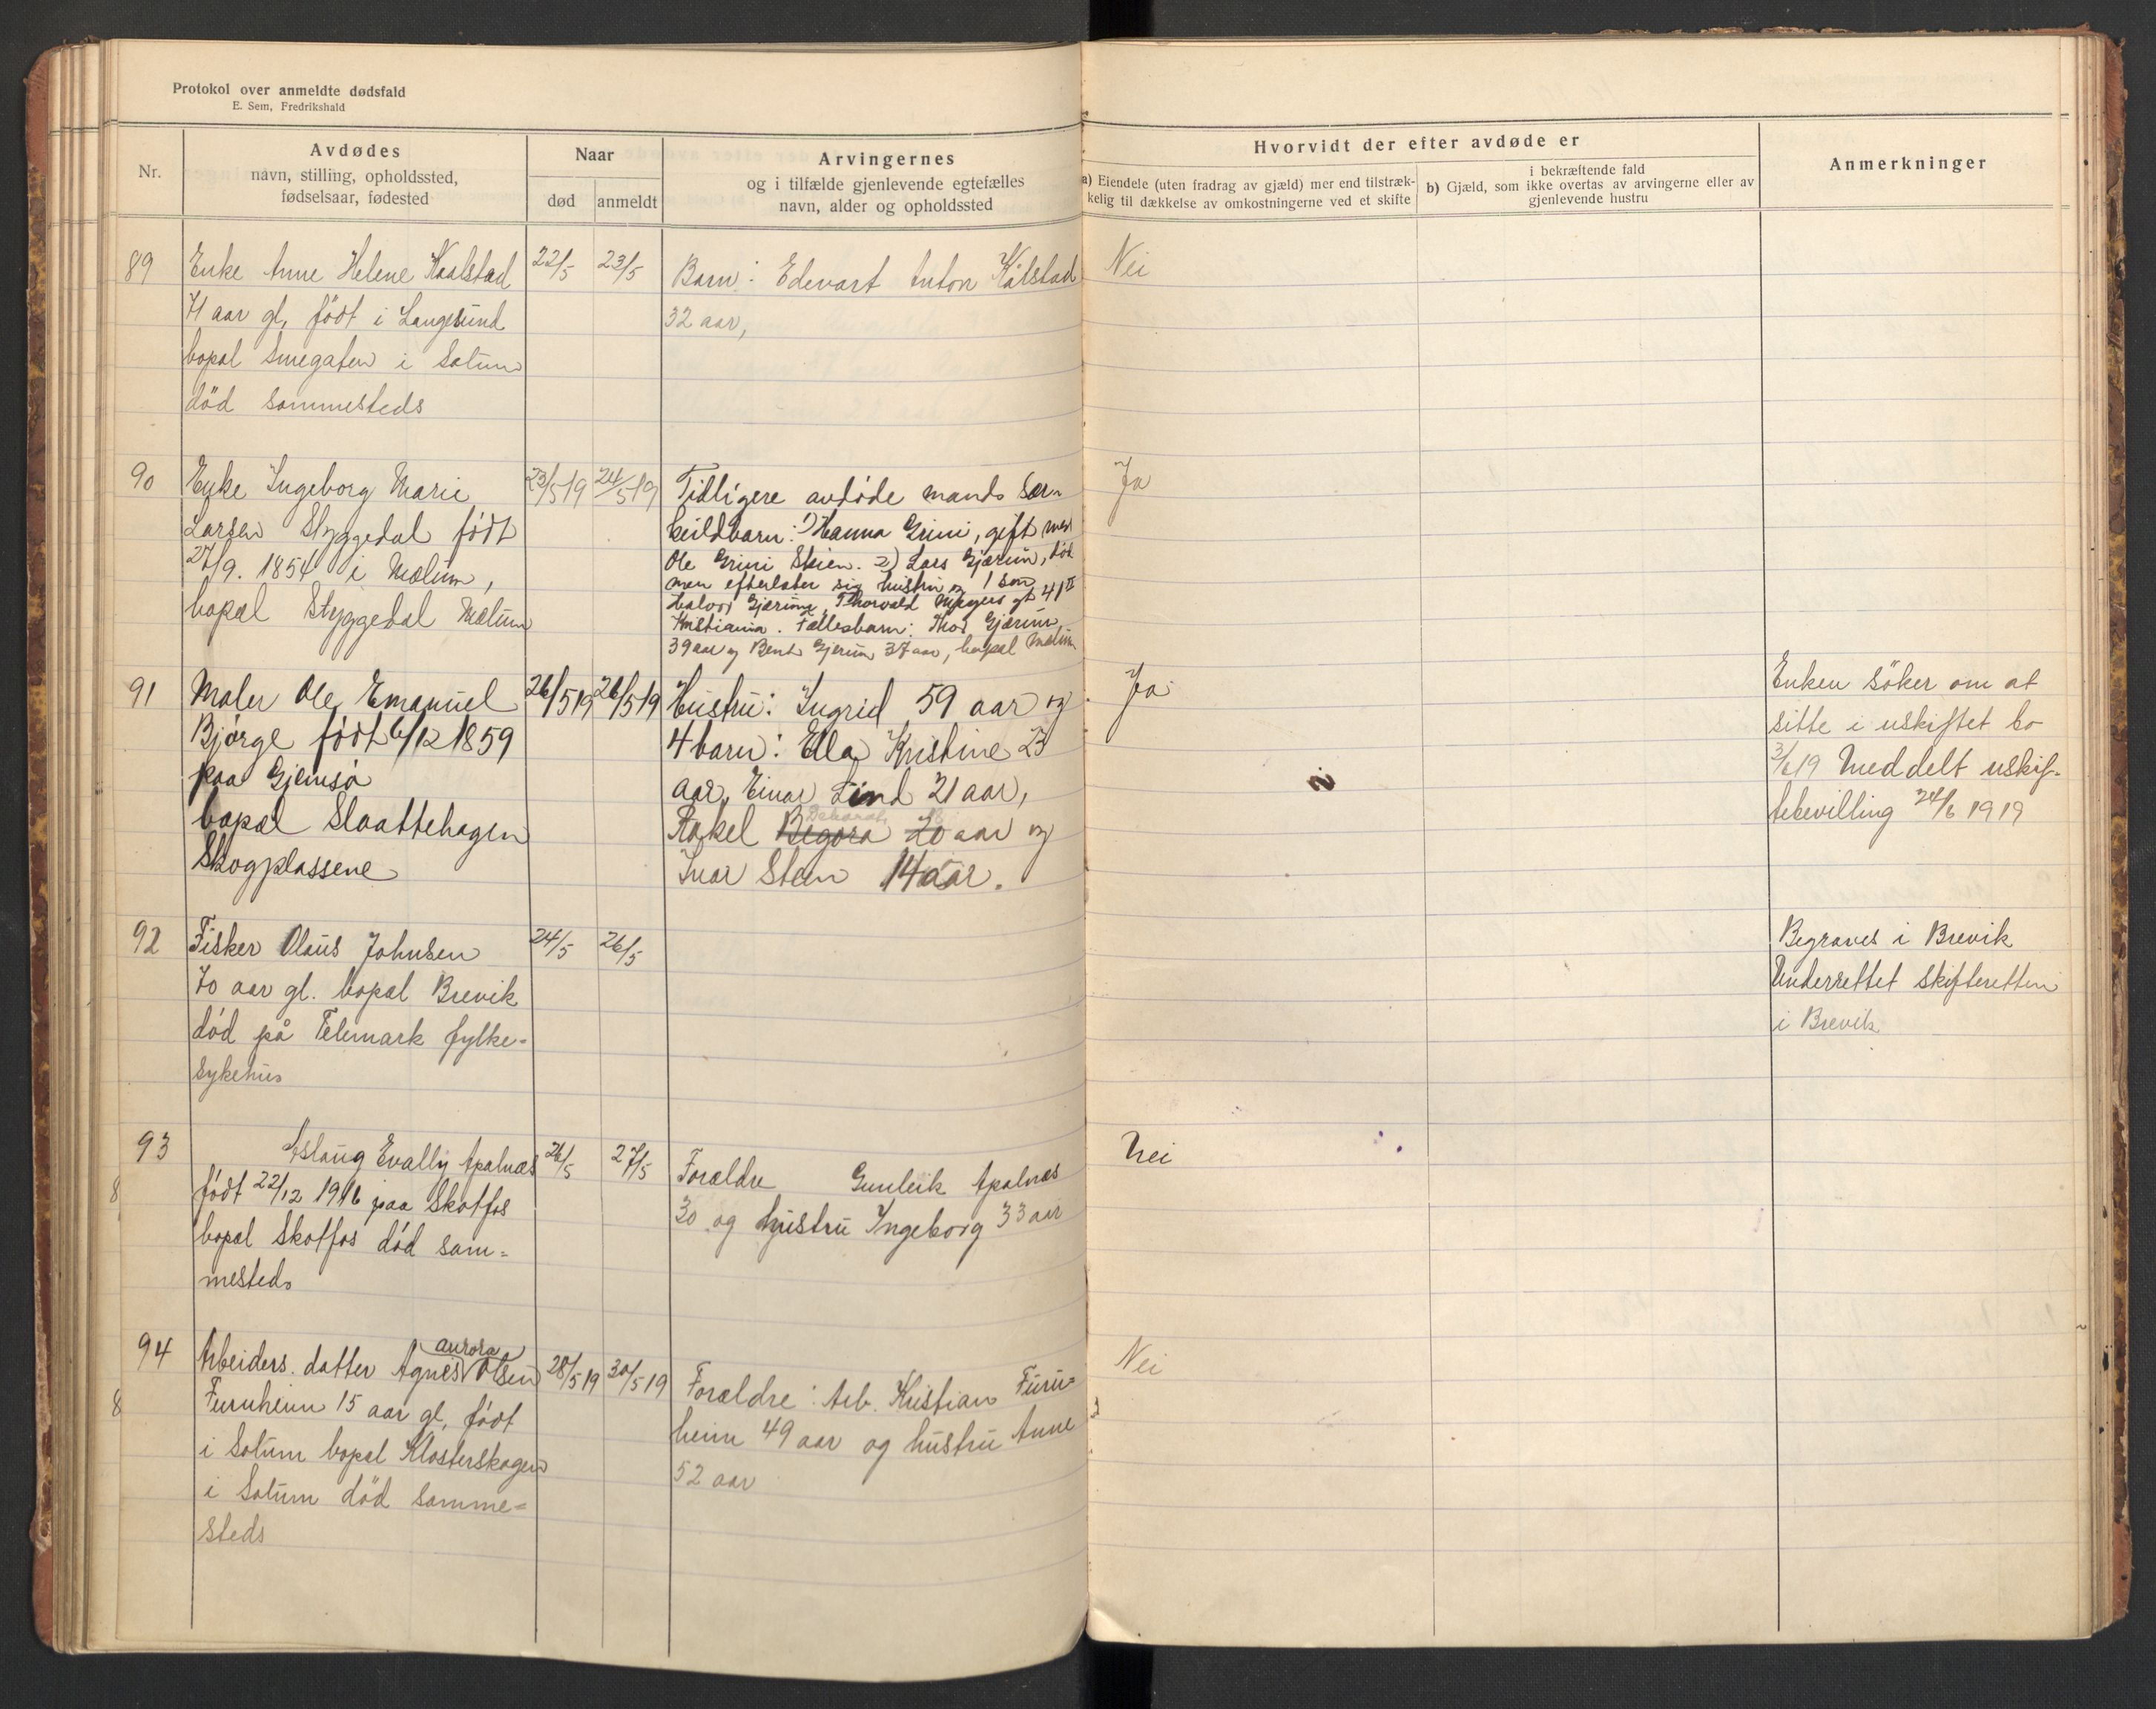 Protokol over anmeldte dødsfald
E. Sem, Fredrikshald
Nr.
Avdødes
navn, stilling, opholdssted,
fødselsaar, fødested
Naar
død
anmeldt
Arvingernes
og i tilfælde gjenlevende egtefælles
navn, alder og opholdssted
Hvorvidt der efter avdøde er
a) Eiendele (uten fradrag av gjæld) mer end tilstræk-
kelig til dækkelse av omkostningerne ved et skifte
i bekræftende fald
b) Gjæld, som ikke overtas av arvingerne eller av
gjenlevende hustru
Anmerkninger
89
Enke Anne Helene Kaalstad
71 aar gl, födt i Langesund
bopal Smegaten i Solum
död sammesteds
22/5
23/5
Barn: Edevart Anton Kålstad
32 aar,
Nei
90
Enke Ingeborg Marie
Larsen Styggedal födt
27/9. 1854 i Mælum,
bopæl Styggedal Mælum
23/5 19
24/5 19
Tidligere avdöde mands sær-
kuldbarn: 1) Hanna Grini, gift med
Ole Grini Skien. 2) Lars Gjærum, död
men efterlater sig hustru og 1 sön
Halvor Gjærum, Thorvald Meyers gt 41 II
Kristiania. Fællesbarn: Thor Gjærum
39 aar og Bent Gjerum 37 aar, bopæl Mælum
Ja
91
Maler Ole Emanuel
Bjørge födt 6/12 1859
paa Gjemsö
bopæl Slaattehagen
Skogplassene
26/5 19
26/5 19
Hustru: Ingrid 59 aar og
4 barn: Ella Kristine 23
aar, Einar Lind 21 aar,
Deborah
Rakel Begora 20 aar og
Ivar Steen 14 aar.
Ja
Enken söker om at
sitte i uskiftet bo
3/6 19 Meddelt uskif-
tebevilling 24/6 1919
92
Fisker Olaus Johnsen
70 aar gl. bopal Brevik
död på Telemark fylke-
sykehus
24/5
26/5
Begraves i Brevik
Underrettet skifteretten
i Brevik
93
Aslaug Evally Apalnæs
8
födt 22/12 1916 paa Skotfos
bopal Skotfos död sam-
mesteds
26/5
27/5
Forældre Gunleik Apalnæs
30 og hustru Ingeborg 33 aar
Nei
94
aurora
Arbeiders. datter Agnes Olsen
8
Furuheim 15 aar gl, födt
i Solum bopal Klosterskogen
i Solum död samme-
steds
28/5 19
30/5 19
Forældre: Arb. Kristian Furu-
heim 49 aar og hustru Anne
52 aar
Nei